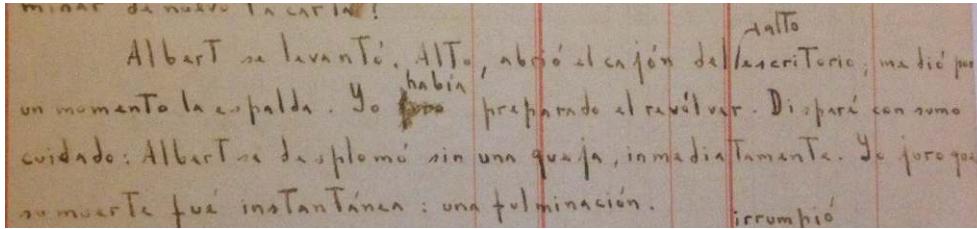 minar de nuevo la carta?
alto
Albert se levantó. Alto, abrió el cajón del escritorio; me dió por
había
un momento la espalda. Yo preparado el revólver. Disparé con sumo
cuidado: Albert se desplomó sin una queja, inmediatamente. Yo juro que
su muerte fué instantánea: una fulminación.
irrumpió